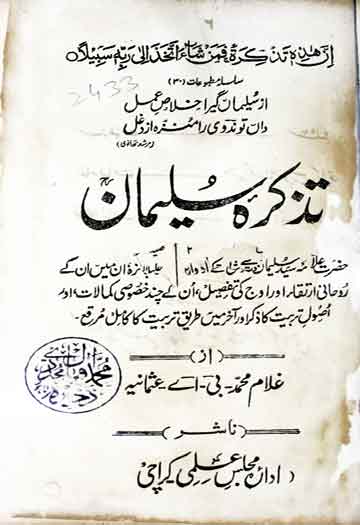 اِنَّ هٰذِهٖ تَذْكِرَةٌ فَمَنْ شَآءَ اتَّخَذَ اِلٰى رَبِّهٖ سَبِيْلًا
سلسلہ مطبوعات (۳۰)
2433
از سلیمان گیر اخلاصِ عمل
داں تو ندوی را منزہ از دغل
(مرشد تھانوی)
تذکرۂ سلیمان
حضرت علامہ سید سلیمان کے ادوار جائزہ ان میں ان کے
روحانی ارتقاء اور اوج کی تفصیل، اُن کے چند خصوصی کمالات اور
اصولِ تربیت کا ذکر اور آخر میں طریق تربیت کا کامل مُرقع۔
(از)
غلام محمد۔ بی۔ اے۔ عثمانیہ
(ناشر)
ادارہ مجلسِ علمی کراچی